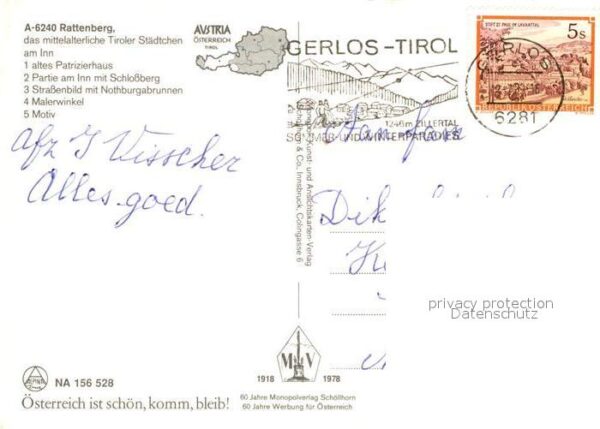 A-6240 Rattenberg,
das mittelalterliche Tiroler Städtchen
am Inn
1 altes Patrizierhaus
2 Partie am Inn mit Schloßberg
3 Straßenbild mit Nothburgabrunnen
4 Malerwinkel
5 Motiv
AVSTRIA
ÖSTERREICH
TIROL
GERLOS-TIROL
1246m ZILLERTAL
SOMMER-UND WINTERPARADIES
GERLOS
6281
STIFT ST. PAUL IM LAVANTTAL
5s
REPUBLIK ÖSTERREICH
afz J Visscher
Alles goed.
Kunst- und Ansichtskarten-Verlag
& Co., Innsbruck, Colingasse 6
Dik
privacy protection
Datenschutz
M V
1918 1978
NA 156 528
Österreich ist schön, komm, bleib!
60 Jahre Monopolverlag Schöllhorn
60 Jahre Werbung für Österreich